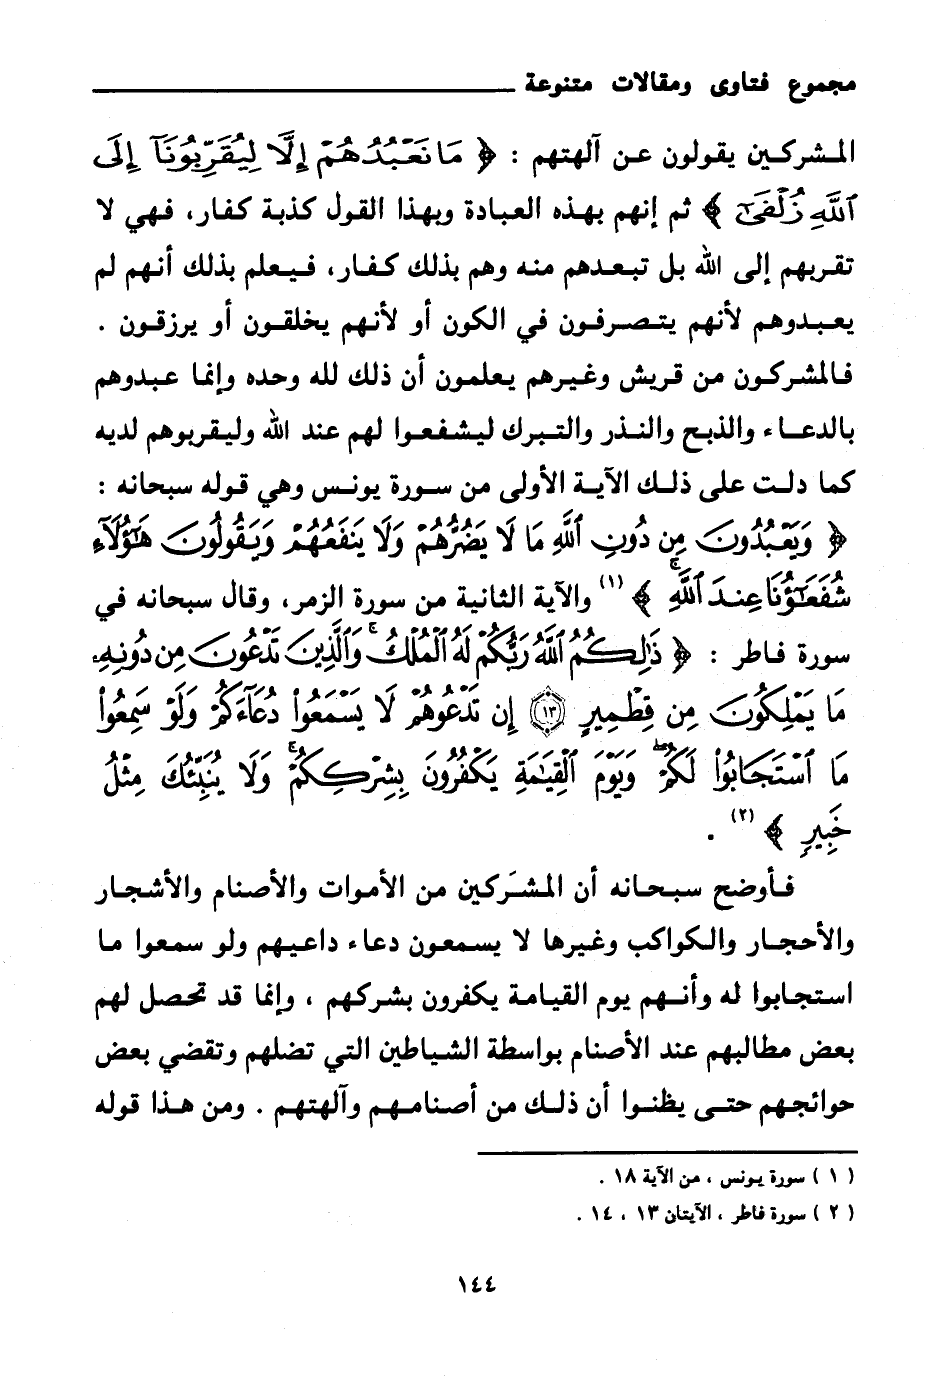 مجموع فتاوى ومقالات متنوعة
المشركين يقولون عن آلهتهم : ﴿ مَا نَعْبُدُهُمْ إِلَّا لِيُقَرِّبُونَآ إِلَى
ٱللَّهِ زُلْفَىٰٓ ﴾ ثم إنهم بهذه العبادة وبهذا القول كذبة كفار، فهي لا
تقربهم إلى الله بل تبعدهم منه وهم بذلك كفار، فيعلم بذلك أنهم لم
يعبدوهم لأنهم يتصرفون في الكون أو لأنهم يخلقون أو يرزقون .
فالمشركون من قريش وغيرهم يعلمون أن ذلك لله وحده وإنما عبدوهم
بالدعاء والذبح والنذر والتبرك ليشفعوا لهم عند الله وليقربوهم لديه
كما دلت على ذلك الآية الأولى من سورة يونس وهي قوله سبحانه :
﴿ وَيَعْبُدُونَ مِن دُونِ ٱللَّهِ مَا لَا يَضُرُّهُمْ وَلَا يَنفَعُهُمْ وَيَقُولُونَ هَٰٓؤُلَآءِ
شُفَعَٰٓؤُنَا عِندَ ٱللَّهِ ۚ ﴾ (١) والآية الثانية من سورة الزمر، وقال سبحانه في
سورة فاطر : ﴿ ذَٰلِكُمُ ٱللَّهُ رَبُّكُمْ لَهُ ٱلْمُلْكُ ۚ وَٱلَّذِينَ تَدْعُونَ مِن دُونِهِۦ
مَا يَمْلِكُونَ مِن قِطْمِيرٍ ﴿١٣﴾ إِن تَدْعُوهُمْ لَا يَسْمَعُوا۟ دُعَآءَكُمْ وَلَوْ سَمِعُوا۟
مَا ٱسْتَجَابُوا۟ لَكُمْ ۖ وَيَوْمَ ٱلْقِيَٰمَةِ يَكْفُرُونَ بِشِرْكِكُمْ ۚ وَلَا يُنَبِّئُكَ مِثْلُ
خَبِيرٍ ﴾ (٢) .
فأوضح سبحانه أن المشَركين من الأموات والأصنام والأشجار
والأحجار والكواكب وغيرها لا يسمعون دعاء داعيهم ولو سمعوا ما
استجابوا له وأنهم يوم القيامة يكفرون بشركهم ، وإنما قد تحصل لهم
بعض مطالبهم عند الأصنام بواسطة الشياطين التي تضلهم وتقضي بعض
حوائجهم حتى يظنوا أن ذلك من أصنامهم وآلهتهم . ومن هذا قوله
( ١ ) سورة يونس ، من الآية ١٨ .
( ٢ ) سورة فاطر ، الآيتان ١٣ ، ١٤ .
١٤٤